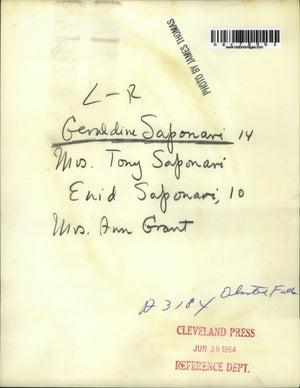 PHOTO BY JAMES THOMAS
L-R
Geraldine Saponari 14
Mrs. Tony Saponari
Enid Saponari, 10
Mrs. Ann Grant
A 3184
Olmsted Falls
CLEVELAND PRESS
JUN 30 1964
REFERENCE DEPT.